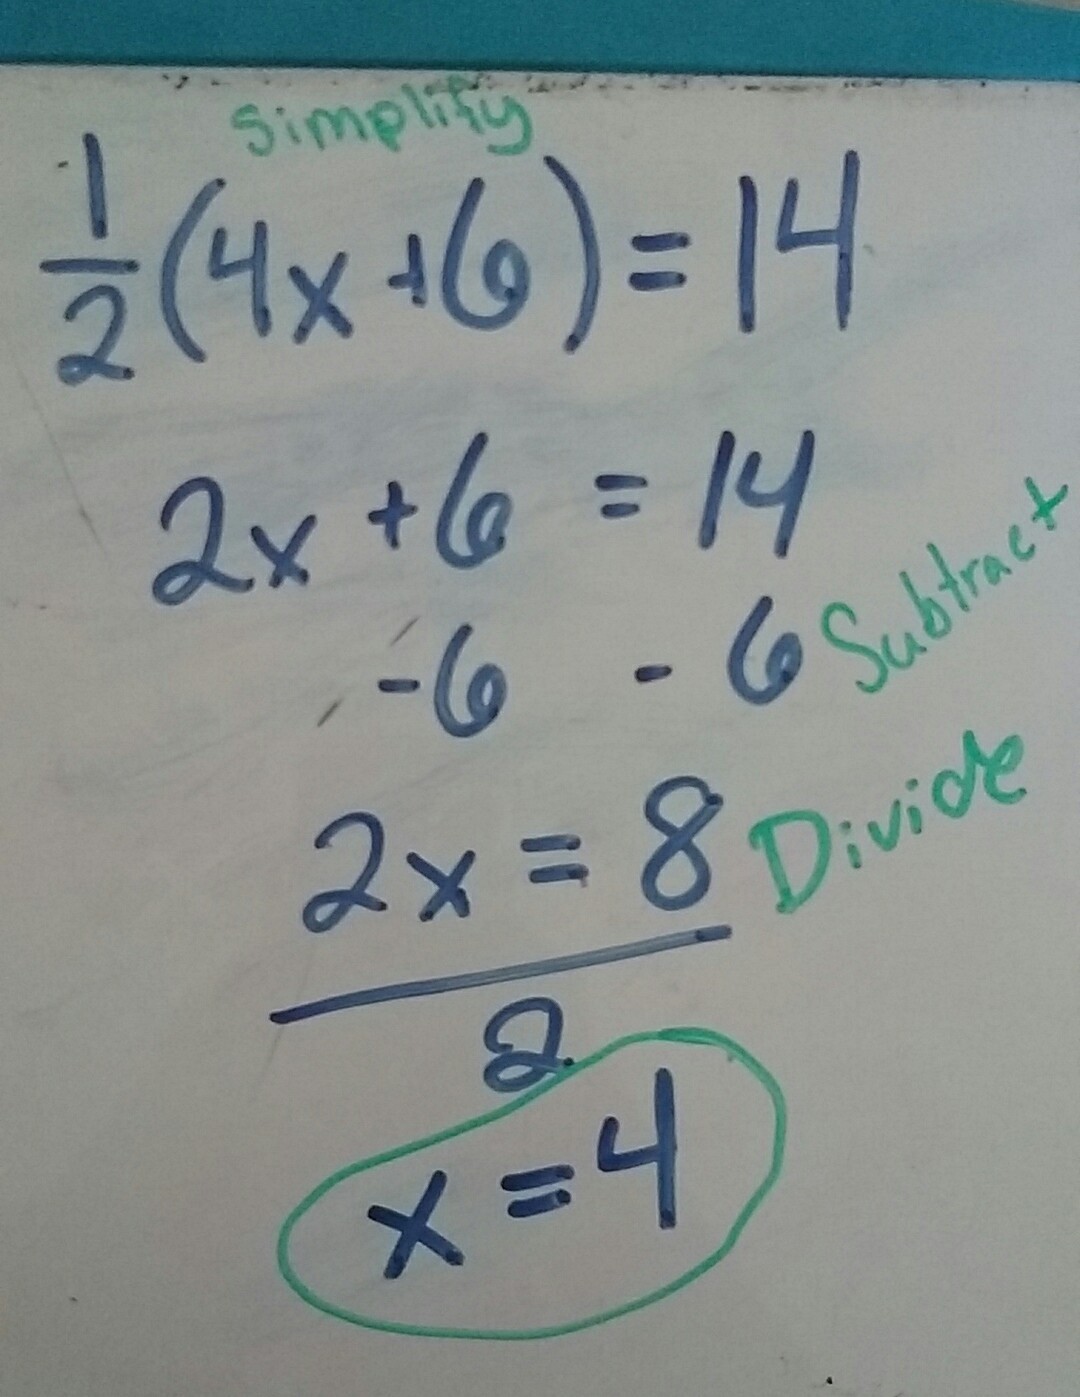 Simplify
1/2(4x+6)=14
2x+6 = 14
-6 - 6 Subtract
2x = 8 Divide
2
x=4